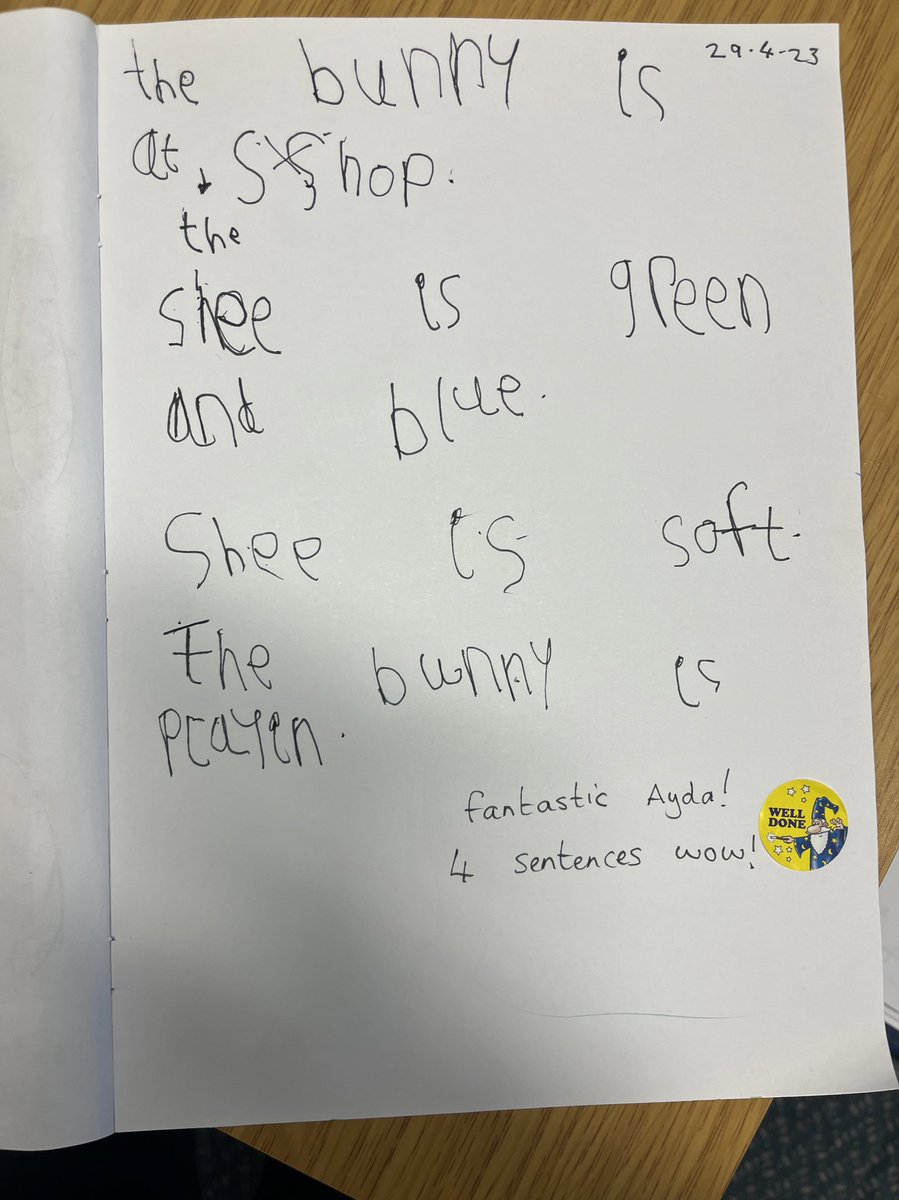 29.4-23
the bunny is
at Shop.
the
shee is green
and blue.
Shee is soft.
The bunny is
prayen.
fantastic Ayda!
4 sentences wow!
WELL
DONE